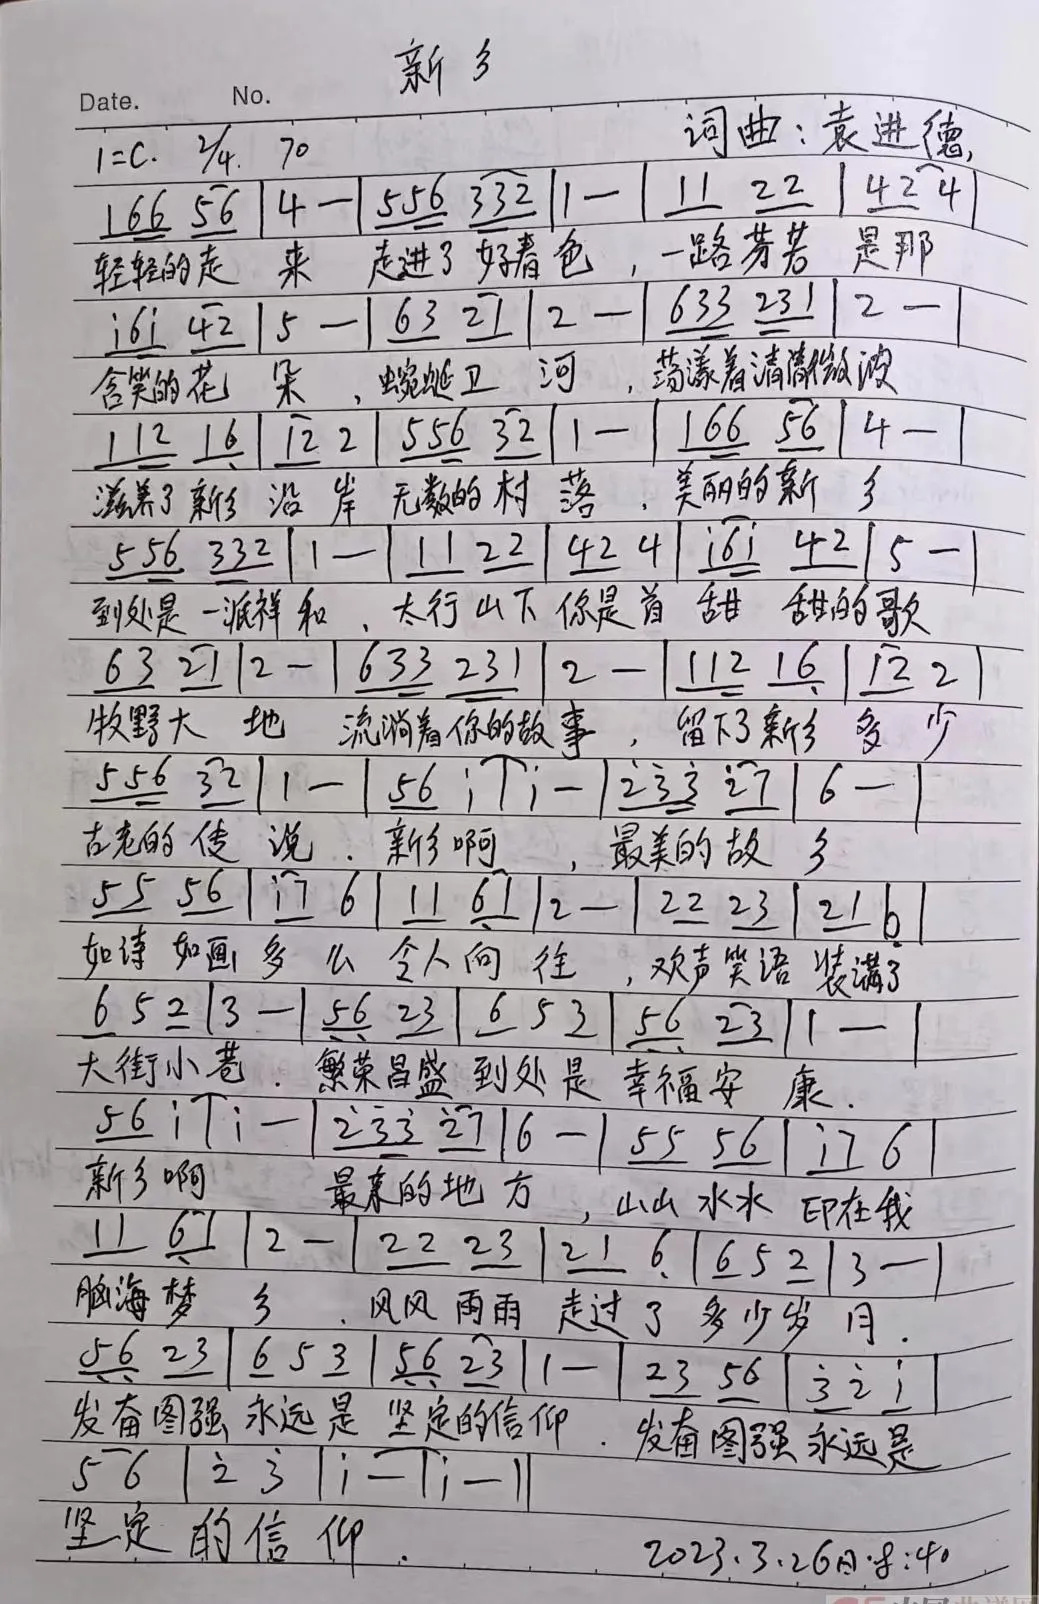 新乡
Date. No.
1=C. 2/4. 70 词曲：袁进德
166 56 | 4 - | 556 332 | 1 - | 11 22 | 42 4 |
轻轻的走 来 走进了好春色，一路芬芳 是那
i6i 42 | 5 - | 63 21 | 2 - | 633 231 | 2 - |
含笑的花 朵，蜿蜒卫 河，荡漾着清澈微波
112 16 | 12 2 | 556 32 | 1 - | 166 56 | 4 - |
滋养了新乡 沿 岸 无数的村 落，美丽的新 乡
556 332 | 1 - | 11 22 | 42 4 | i6i 42 | 5 - |
到处是一派祥和，太行山下你是首 甜 甜的歌
63 21 | 2 - | 633 231 | 2 - | 112 16 | 12 2 |
牧野大 地 流淌着你的故事，留下了新乡 多 少
556 32 | 1 - | 56 i | i - | 233 27 | 6 - |
古老的传 说．新乡啊，最美的故 乡
55 56 | i7 6 | 11 61 | 2 - | 22 23 | 21 6 |
如诗 如画 多 么 令人向 往，欢声笑语 装满了
6 5 2 | 3 - | 56 23 | 6 5 3 | 56 23 | 1 - |
大街小巷．繁荣昌盛 到处是 幸福安 康．
56 i | i - | 233 27 | 6 - | 55 56 | i7 6 |
新乡啊 最亲的地 方，山山 水水 印在我
11 61 | 2 - | 22 23 | 21 6 | 6 5 2 | 3 - |
脑海梦 乡．风风雨雨 走过了 多少岁 月．
56 23 | 6 5 3 | 56 23 | 1 - | 23 56 | 3 2 i |
发奋图强 永远是 坚定的信仰．发奋图强 永远是
5 6 | 2 3 | i - | i - ||
坚定 的 信 仰．
2023.3.26日.8:40